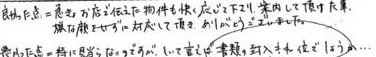 良かった点=急きょお店で伝えた物件も快く応じて下さり、案内して頂けた事、
嫌な顔をせずに対応して頂き、ありがとうございました。
悪かった点=特に見当らないのですが、しいて言えば書類の封入それ位でしょうか…